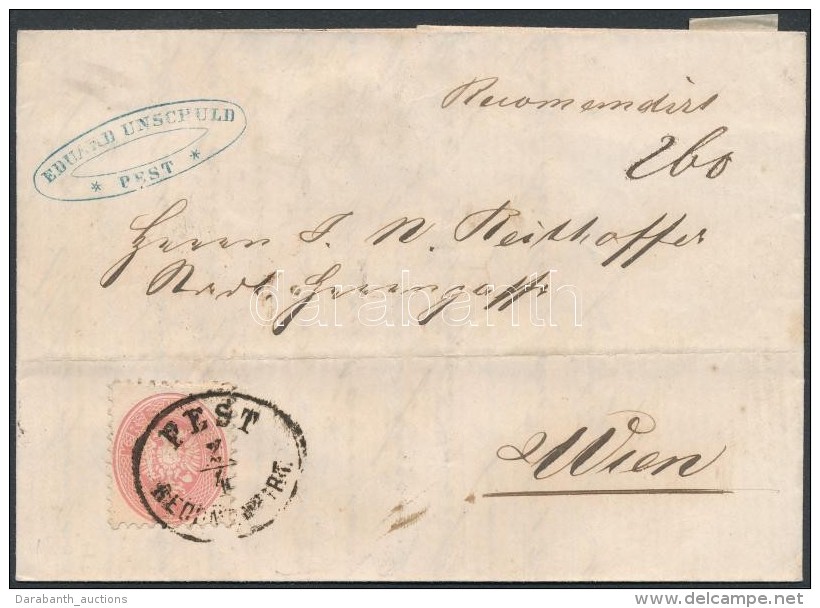 Recomendirt
260
EDUARD UNSCHULD
* PEST *
Herrn J. N. Reithoffer
Stadt, Herrengasse
darabanth
PEST
RECOMMANDIRT.
Wien
Darabanth_auctions
delcampe.net